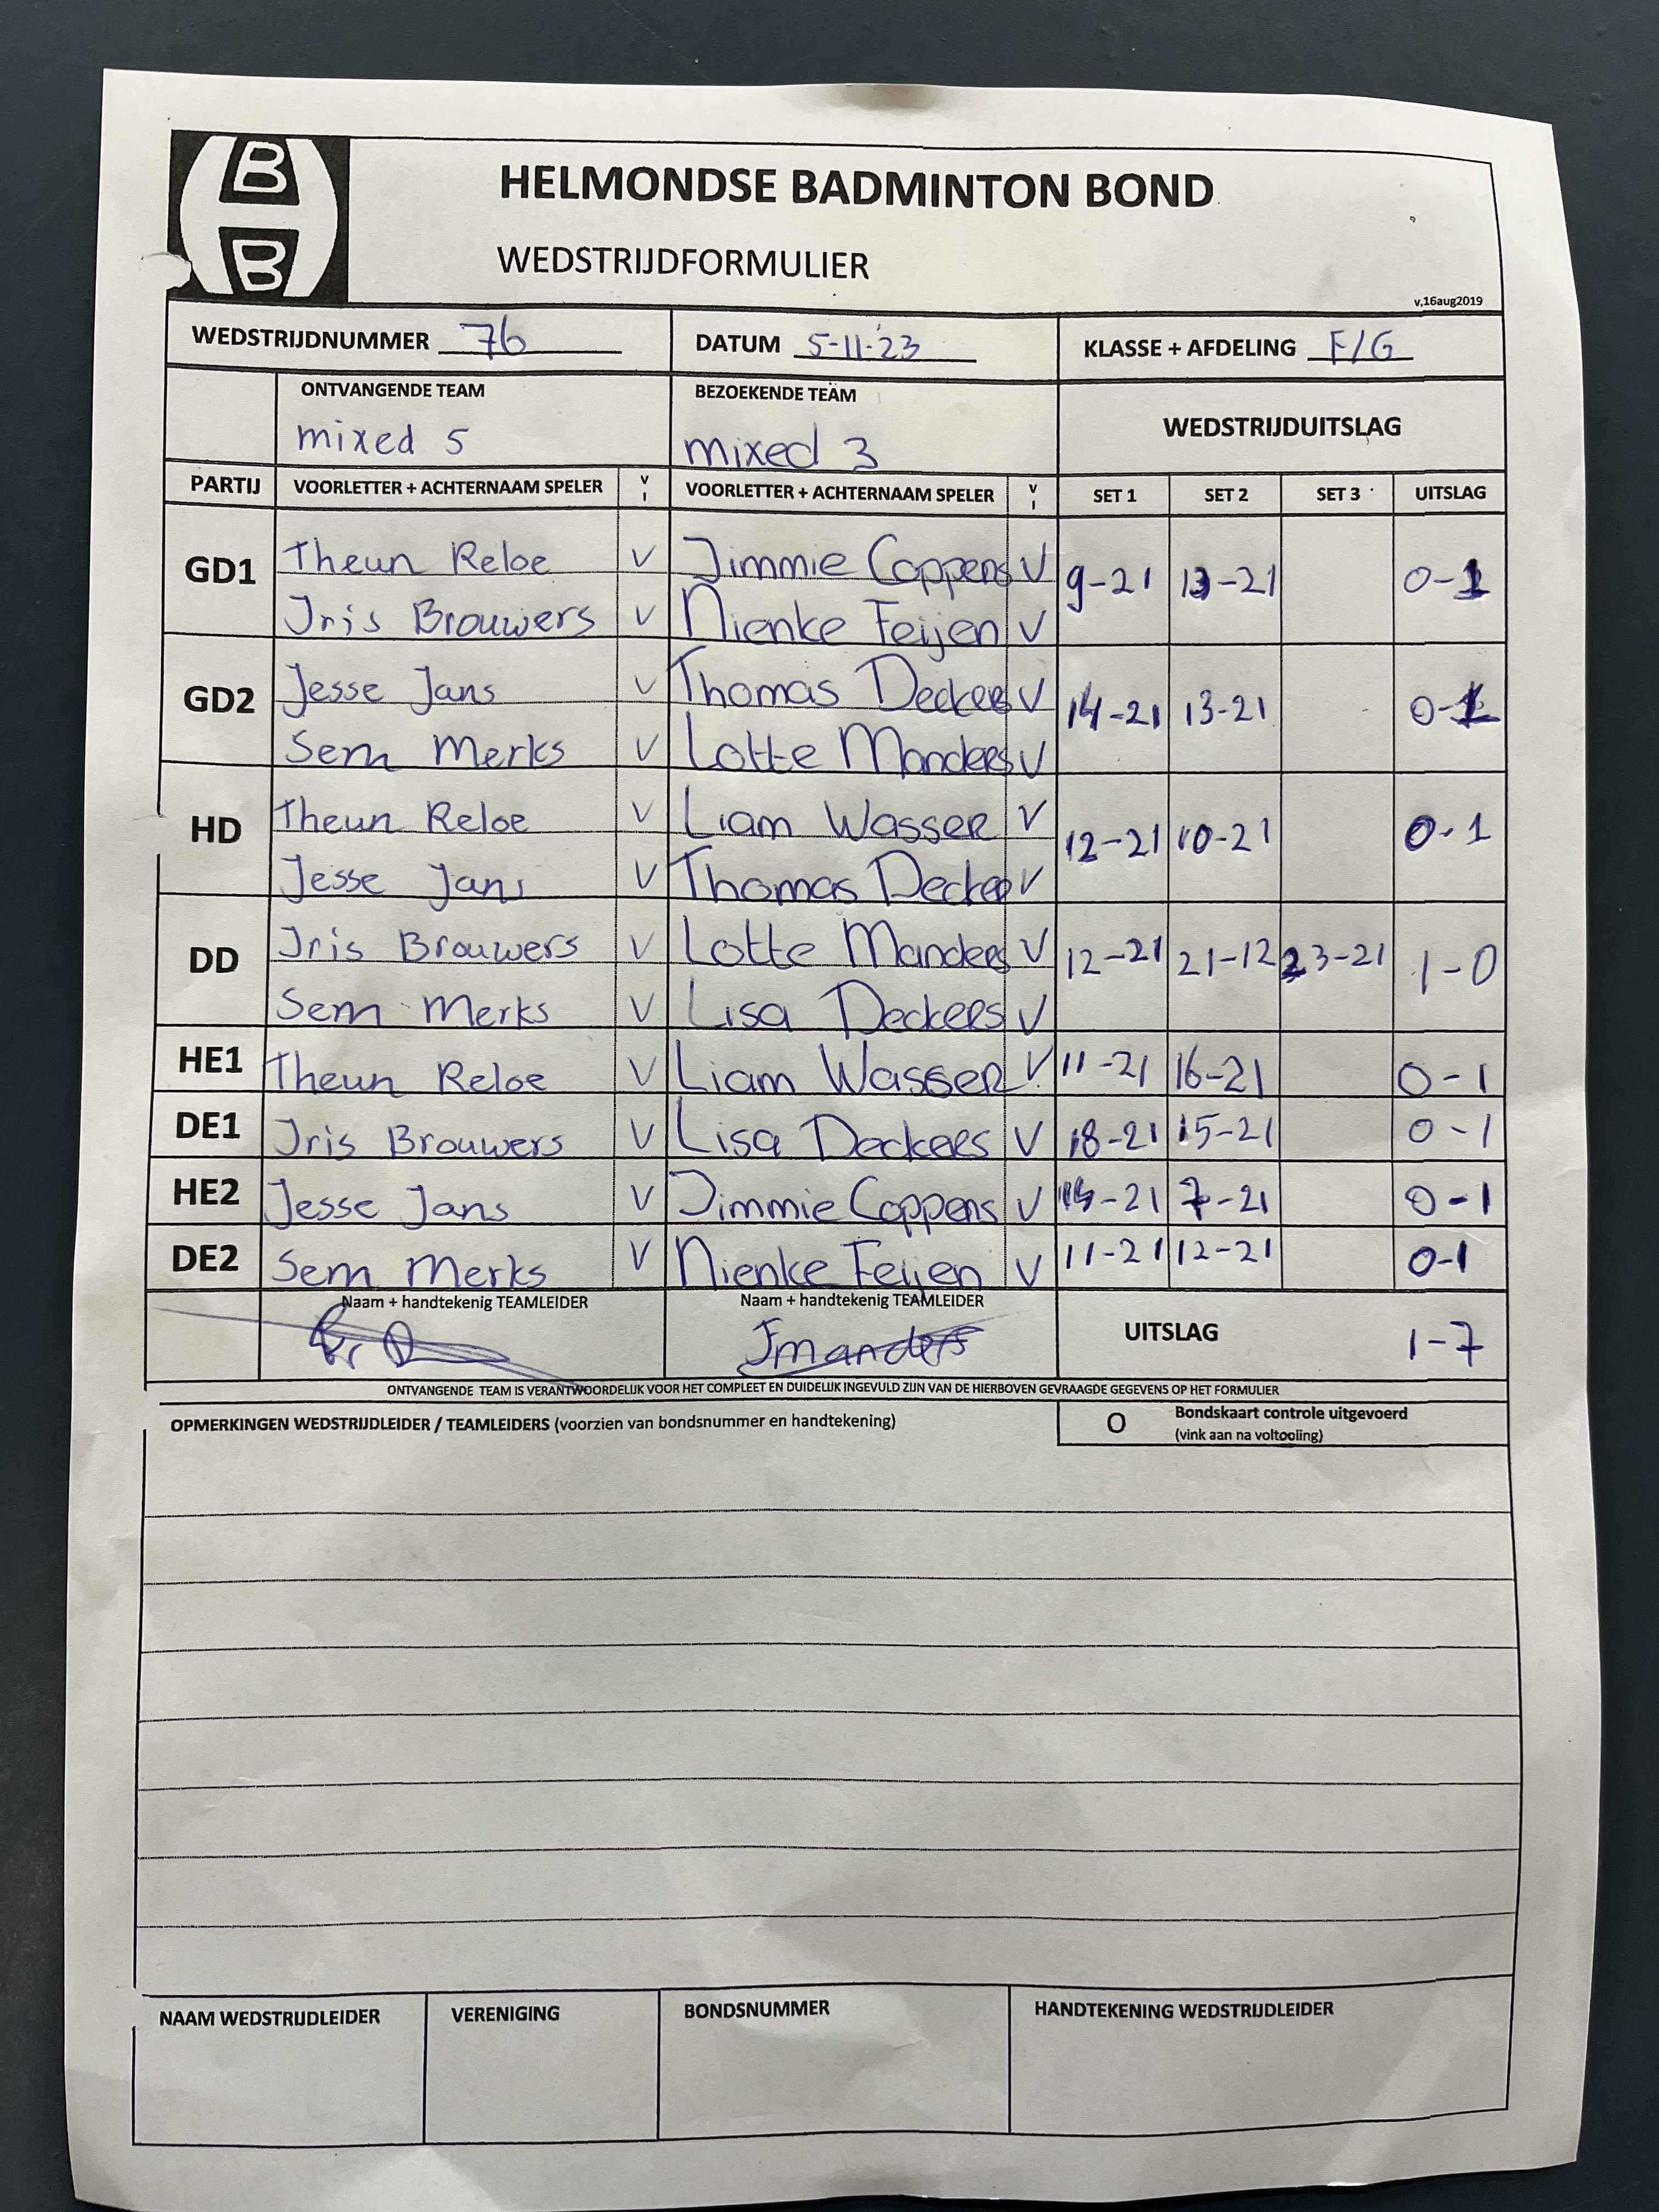 B
B
HELMONDSE BADMINTON BOND
WEDSTRIJDFORMULIER
v,16aug2019
WEDSTRIJDNUMMER 76 DATUM 5-11-23 KLASSE + AFDELING F/G
ONTVANGENDE TEAM BEZOEKENDE TEAM WEDSTRIJDUITSLAG
mixed 5 mixed 3
PARTIJ VOORLETTER + ACHTERNAAM SPELER V I VOORLETTER + ACHTERNAAM SPELER V I SET 1 SET 2 SET 3 UITSLAG
GD1 Theun Reloe V Jimmie Coppens V 9-21 13-21 0-1
Jris Brouwers V Nienke Feijen V
GD2 Jesse Jans V Thomas Deckers V 14-21 13-21 0-1
Sem Merks V Lotte Manders V
HD Theun Reloe V Liam Wasser V 12-21 10-21 0-1
Jesse Jans V Thomas Decker V
DD Jris Brouwers V Lotte Manders V 12-21 21-12 23-21 1-0
Sem Merks V Lisa Deckers V
HE1 Theun Reloe V Liam Wasser V 11-21 16-21 0-1
DE1 Jris Brouwers V Lisa Deckers V 18-21 15-21 0-1
HE2 Jesse Jans V Jimmie Coppens V -21 7-21 0-1
DE2 Sem Merks V Nienke Feijen V 11-21 12-21 0-1
Naam + handtekenig TEAMLEIDER Naam + handtekenig TEAMLEIDER UITSLAG 1-7
Jmanders
ONTVANGENDE TEAM IS VERANTWOORDELIJK VOOR HET COMPLEET EN DUIDELIJK INGEVULD ZIJN VAN DE HIERBOVEN GEVRAAGDE GEGEVENS OP HET FORMULIER
OPMERKINGEN WEDSTRIJDLEIDER / TEAMLEIDERS (voorzien van bondsnummer en handtekening) O Bondskaart controle uitgevoerd
(vink aan na voltooiing)
NAAM WEDSTRIJDLEIDER VERENIGING BONDSNUMMER HANDTEKENING WEDSTRIJDLEIDER